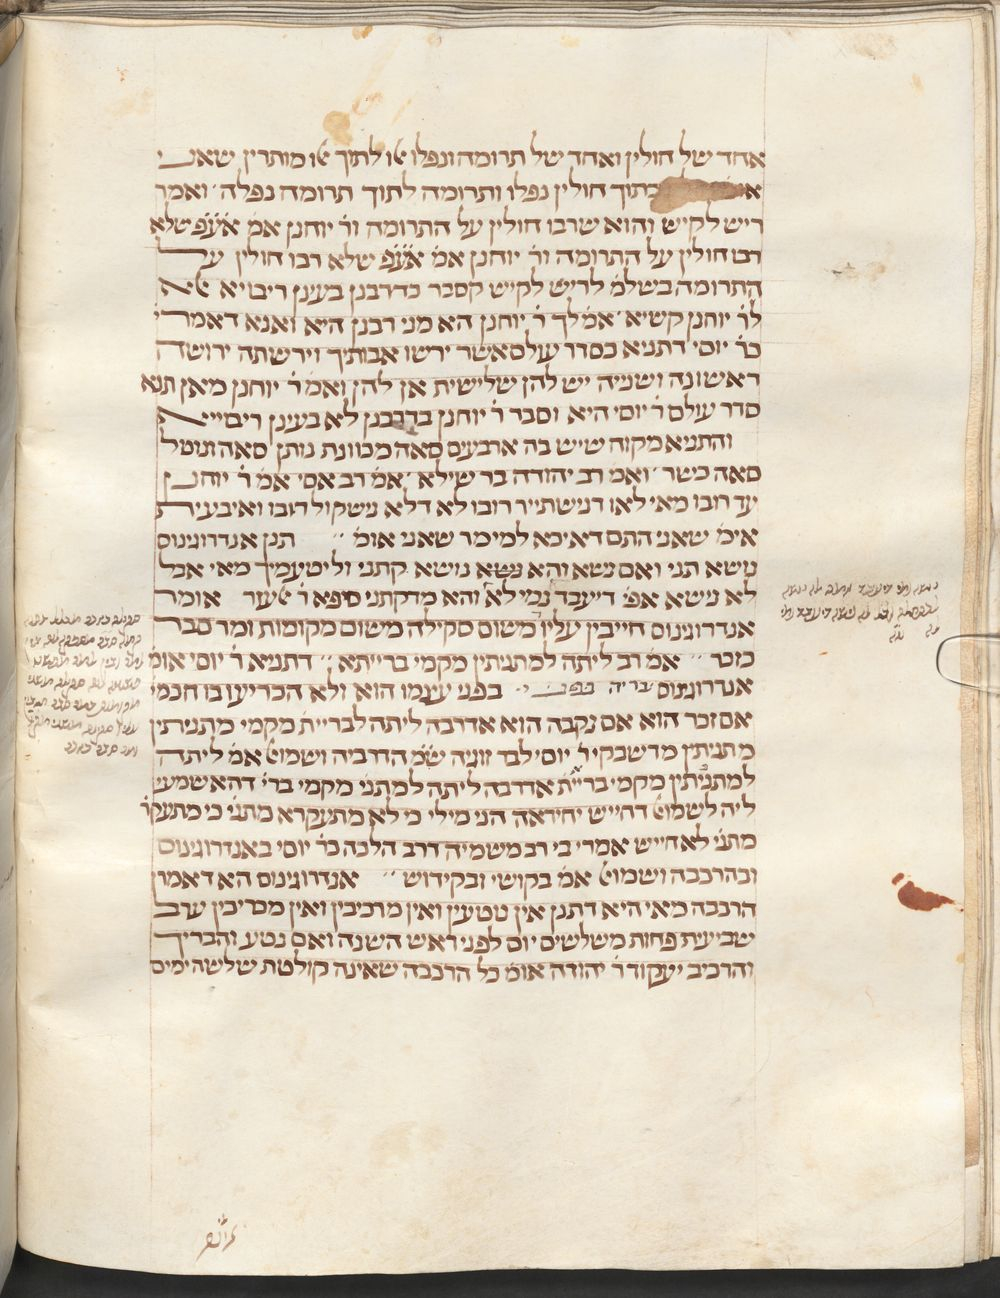 אחד של חולין ואחד של תרומה ונפלו אלו לתוך אלו מותרין שאני
בתוך חולין נפלו ותרומה לתוך תרומה נפלה ׳ ואמר
ריש לקיש והוא שרבו חולין על התרומה ור׳ יוחנן אמ׳ אע״פ שלא
רבו חולין על התרומה ור׳ יוחנן אמ׳ אע״פ שלא רבו חולין על
התרומה בשלמ׳ לריש לקיש קסבר בדרבנן בעינן ריבויא אלא
לר׳ יוחנן קשיא ׳ אמ׳ לך ר׳ יוחנן הא מני רבנן היא ואנא דאמרי
כר׳ יוסי ׳ דתניא בסדר עולם אשר ירשו אבותיך וירשתה ירושה
ראשונה ושניה יש להן שלישית אן להן ואמ׳ ר׳ יוחנן מאן תנא
סדר עולם ר׳ יוסי היא וסבר ר׳ יוחנן בדרבנן לא בעינן ריבוייא
והתניא מקוה שיש בה ארבעים סאה מכוונת נותן סאה ונוטל
סאה כשר ׳ ואמ׳ רב יהודה בר שילא ׳ אמ׳ רב אסי אמ׳ ר׳ יוחנן
עד רובו מאי לאו דנישתייר רובו לא דלא נישקול רובו ואיבעית
אימ׳ שאני התם דאיכא למימר שאני אומ׳ ׳׳ תנן אנדרוגינוס
נושא תני ואם נשא והא נושא קתני וליטעמיך מאי אבל
לא נישא אפ׳ דיעבד נמי לא והא מדקתני סיפא ר׳ אלעזר אומר
אנדרוגינוס חייבין עליו משום סקילה משום מקומות ומר סבר
כזכר ׳׳ אמ׳ רב ליתה למתניתין מקמי ברייתא ׳׳ דתניא ר׳ יוסי אומ׳
אנדרוגינוס בריה בפני עצמו הוא ולא הכריעו בו חכמי׳
אם זכר הוא אם נקבה הוא אדרבה ליתה לברייתא מקמי מתניתין
מתניתין מדשבקיה ר׳ יוסי לבר זוגיה ש״מ הדר ביה ושמואל אמ׳ ליתה
למתניתין מקמי ברייתא אדרבה ליתה למתני׳ מקמי ברי׳ דהא שמעי׳
ליה לשמואל דחייש יחיראה הני מילי כי לא מתעקרא מתני׳ כי מתעקר׳
מתני׳ לא חייש אמרי בי רב משמיה דרב הלכה כר׳ יוסי באנדרוגינוס
ובהרכבה ושמואל אמ׳ בקושי ובקידוש ׳׳ אנדרוגינוס הא דאמרן
הרכבה מאי היא דתנן אין נוטעין ואין מרכיבין ואין מבריכין ערב
שביעית פחות משלשים יום לפני ראש השנה ואם נטע והבריך
והרכיב יעקור ר׳ יהודה אומ׳ כל הרכבה שאינה קולטת שלשה ימים